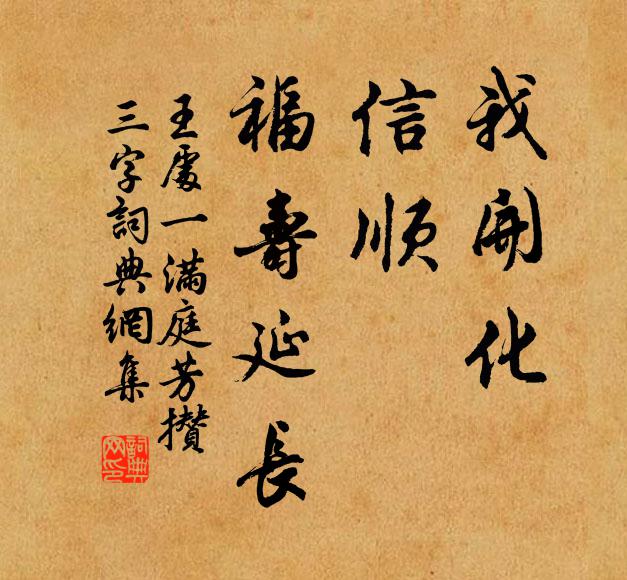 我開化
信順
福壽延長
王處一满庭芳攢
三字詞典網集
詞典网印